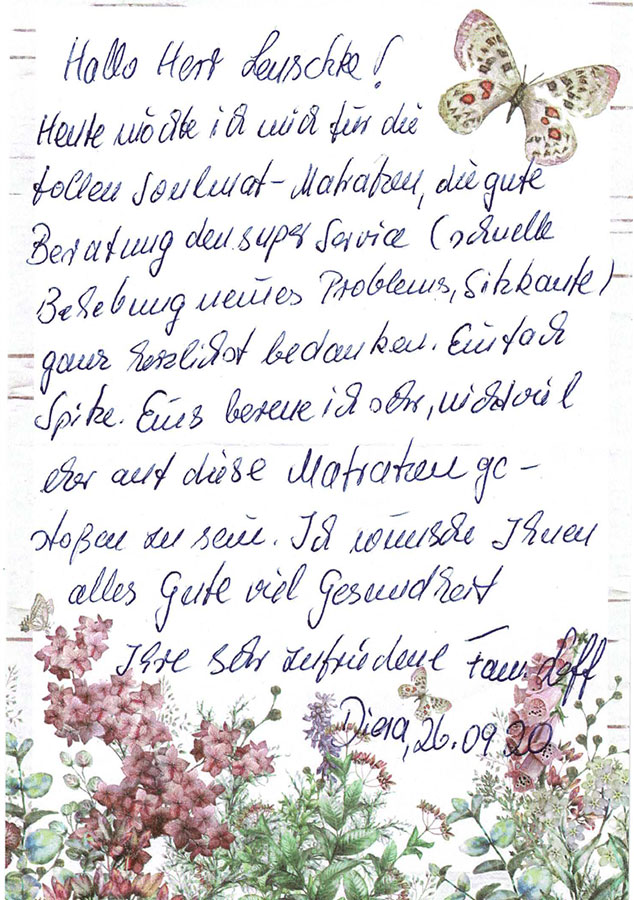 Hallo Herr Leuschke!
Heute möchte ich mich für die
tollen Soulmat-Matratzen, die gute
Beratung den super Service (schnelle
Behebung meines Problems, Sitzkante)
ganz herzlichst bedanken. Einfach
Spitze. Eins bereue ich sehr, nicht viel
eher auf diese Matratzen ge-
stoßen zu sein. Ich wünsche Ihnen
alles Gute viel Gesundheit
Ihre sehr zufriedene Fam. Löff
Diera, 26.09.20